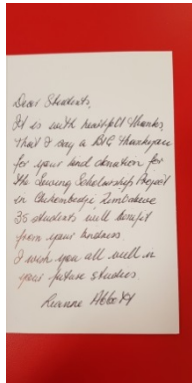 Dear Students,
It is with heartfelt thanks,
that I say a BIG thankyou
for your kind donation for
the Sewing Scholarship Project
in Zimbabwe
35 students will benefit
from your kindness.
I wish you all well in
your future studies
Abbott